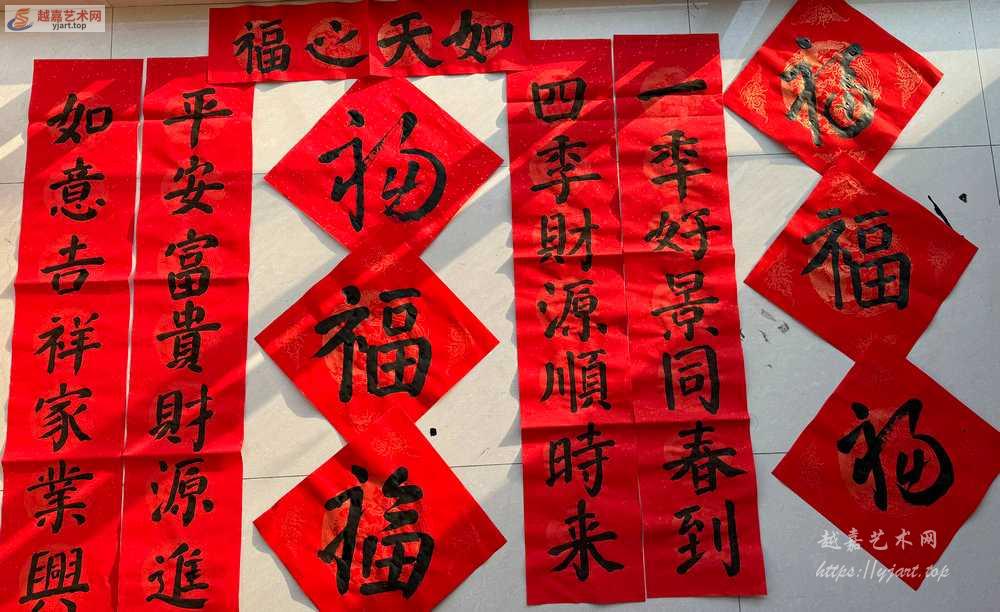 越嘉艺术网
yjart.top
如天之福
一年好景同春到
四季財源順時来
平安富貴財源進
如意吉祥家業興
福
福
福
福
福
福
越嘉艺术网
https://yjart.top